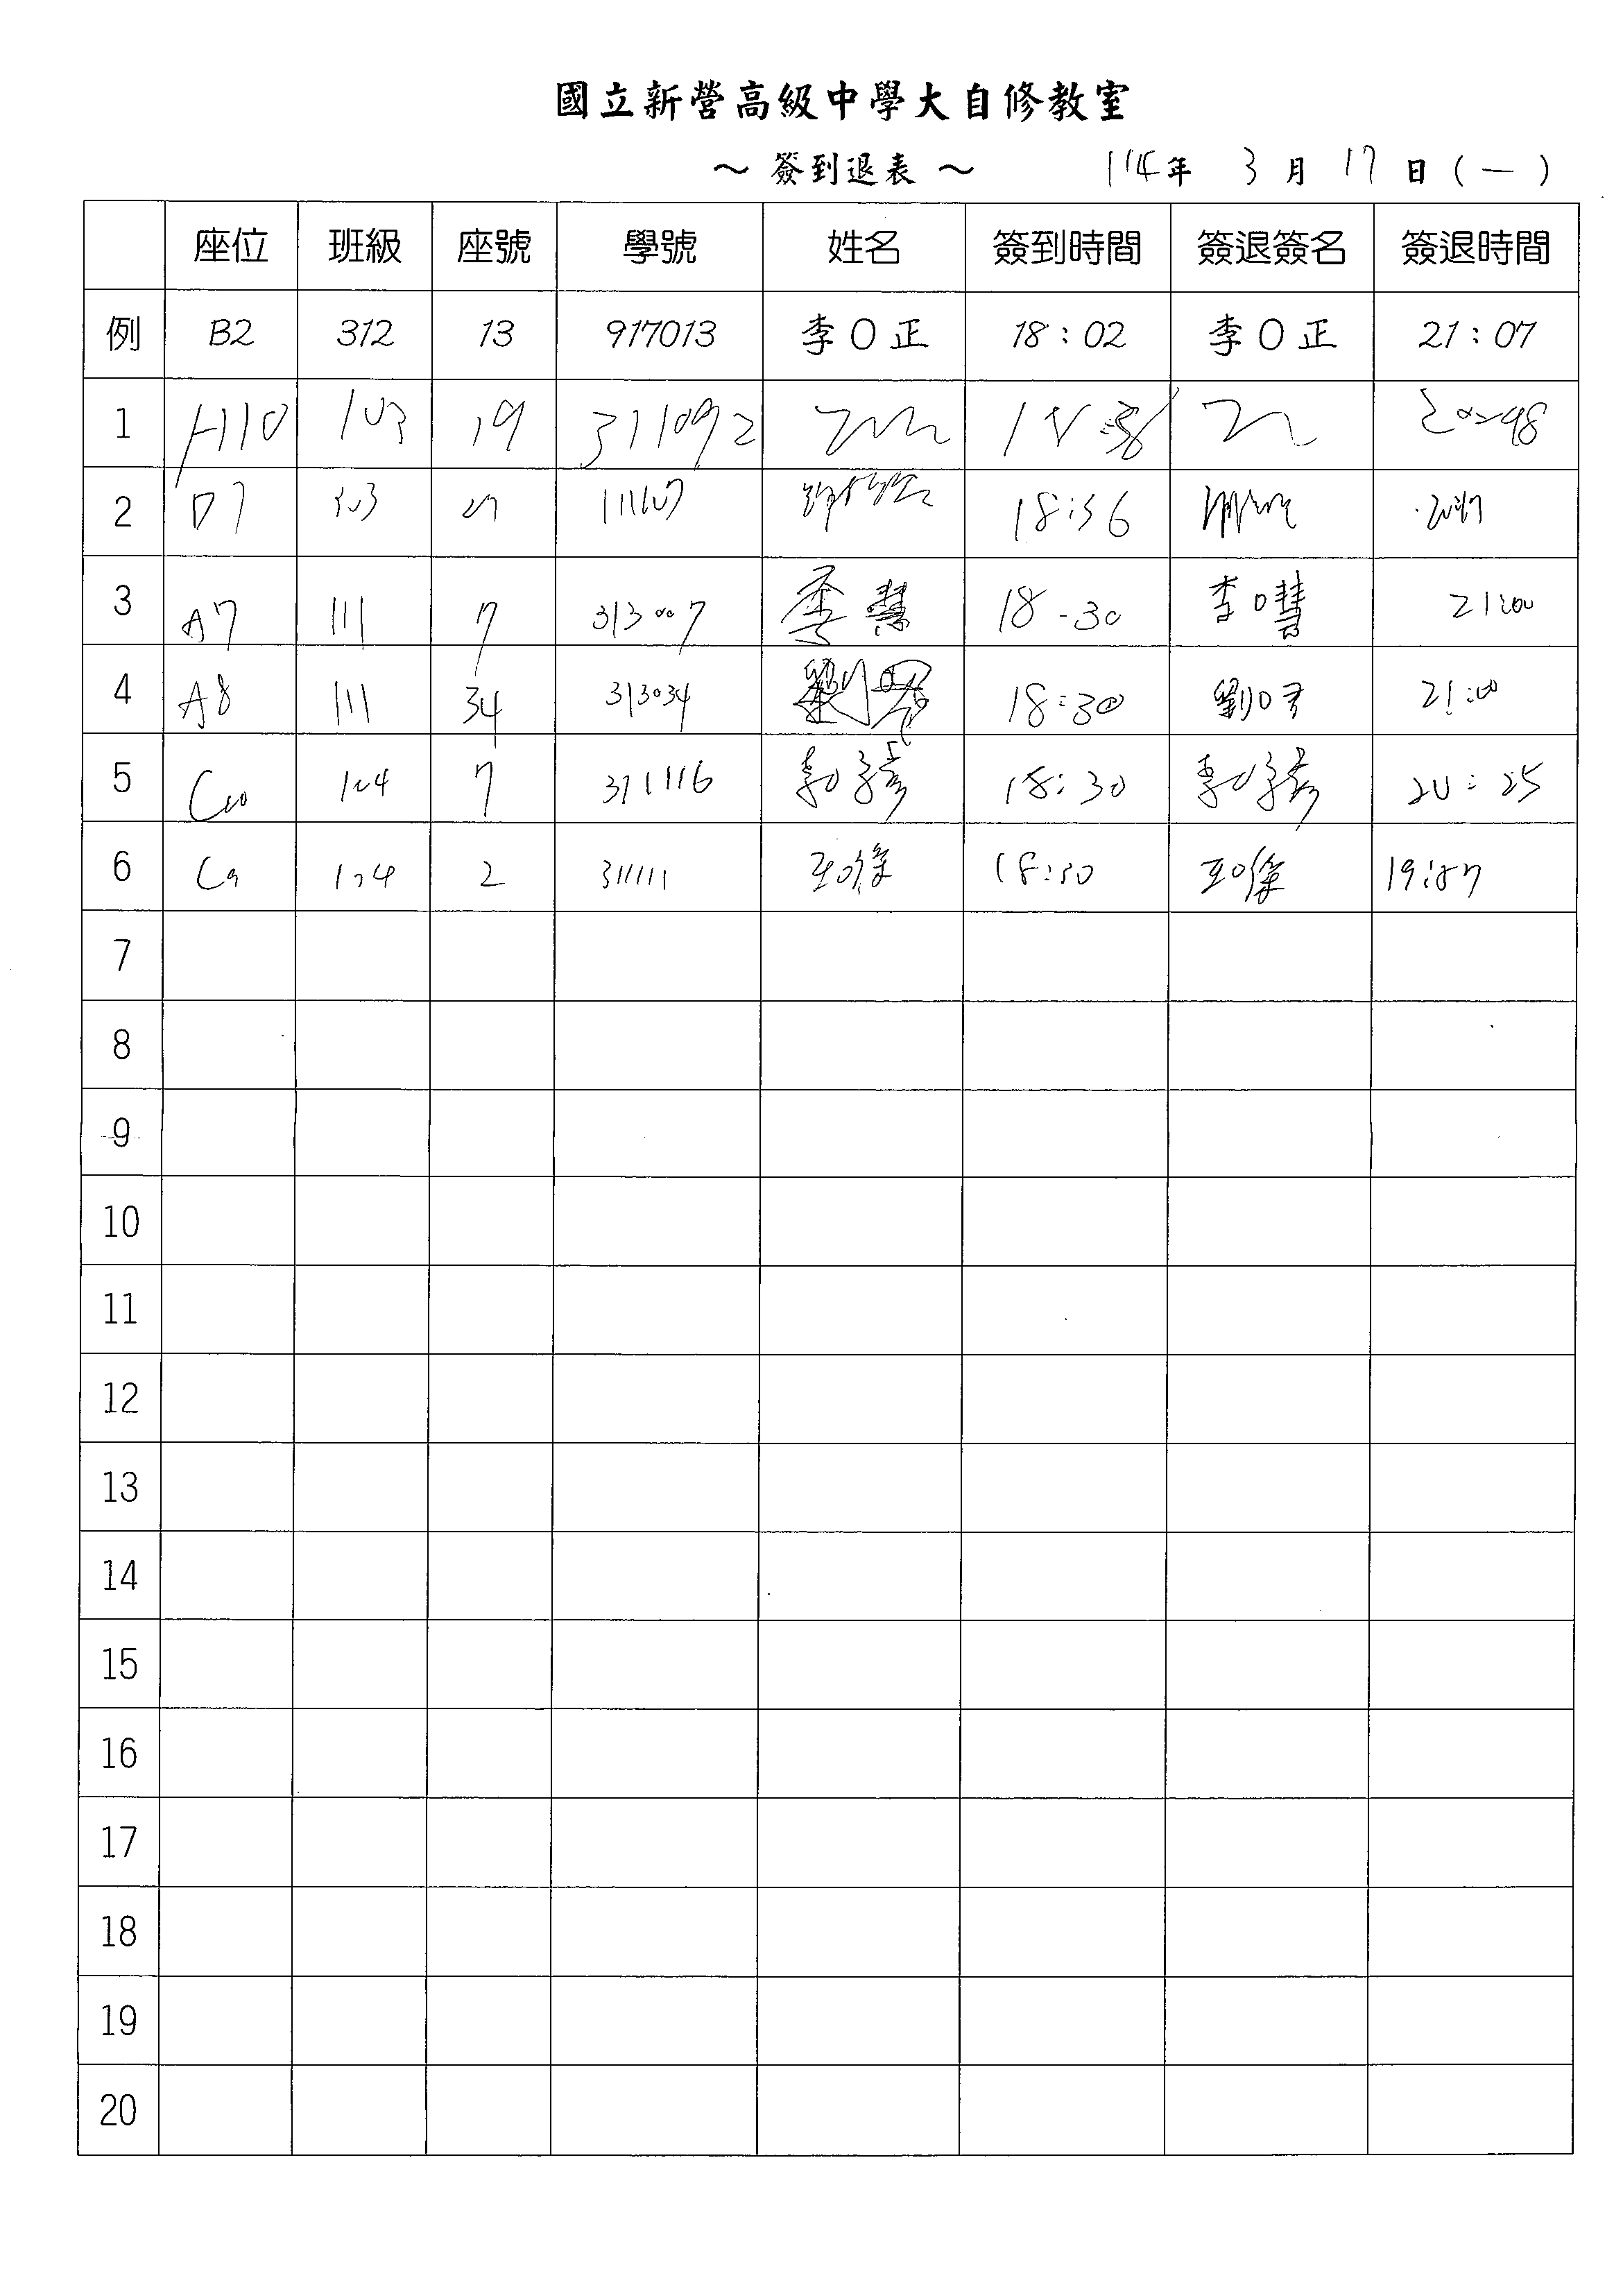 國立新營高級中學大自修教室
～ 簽到退表 ～ 114年 3月 17日(一)
座位 班級 座號 學號 姓名 簽到時間 簽退簽名 簽退時間
例 B2 312 13 917013 李O正 18:02 李O正 21:07
1 H10 103 19 311092 20:48
2 D7 303 18:36
3 A7 111 7 313007 李 慧 18-30 李O慧 21:00
4 A8 111 34 313034 18:30 劉O君 21:00
5 C10 104 7 311116 18:30 20:25
6 C9 104 2 311111 18:30 19:57
7
8
9
10
11
12
13
14
15
16
17
18
19
20